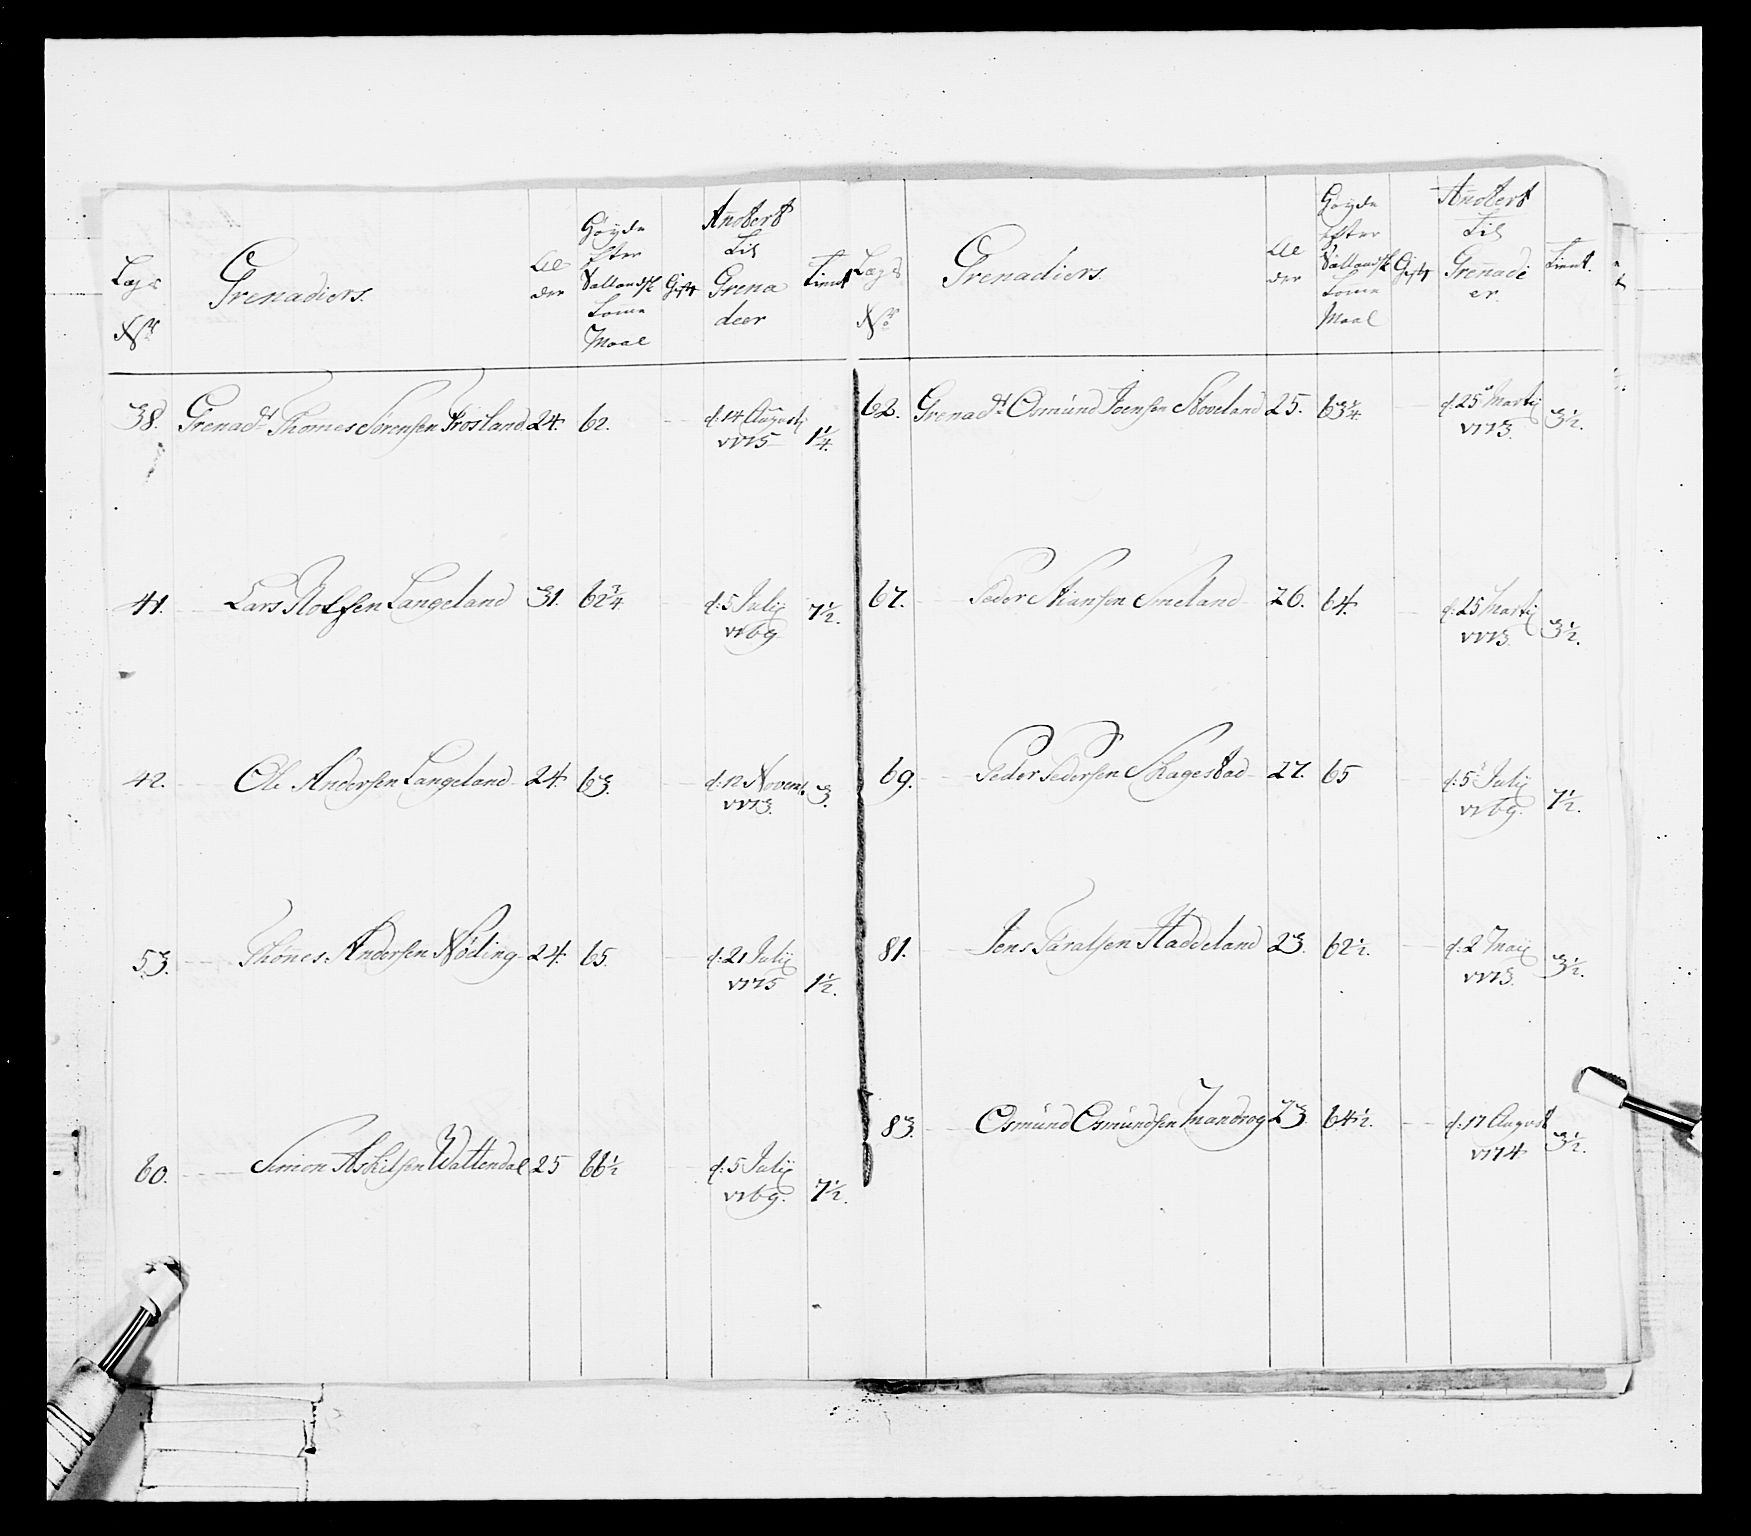 Lægs
No
Grenadiers.
Al
der
Høyde
efter
Sallandsk
Tome
Maal
Gift
Ansadt
til
Grena
deer
Tient
38. Grenadr Thomes Sørensen Frøsland 24. 62. d: 14 Augusti 1775 1 1/4.
41. Lars Rolfsen Langeland 31. 62 3/4 d: 5 Julij 1769 7 1/2.
42. Ole Andersen Langeland 24. 63. d: 12 Novemb. 1773. 3.
53. Thönes Andersen Nøding 24. 65. d: 21 Julij 1775 1 1/2.
60. Simon Askilsen Wattendal 25 66 1/2 d: 5 Julij 1769. 7 1/2.
Lægs
No
Grenadiers.
Al
der
Høyde
efter
Sallandsk
Tome
Maal
Gift
Ansadt
til
Grenade
er.
Tient.
62. Grenadr Osmund Joensen Stoveland 25. 63 1/4. d: 25 Martij 1773. 3 1/2.
67. Peder Stiansen Smeland 26. 64. d: 25 Martij 1773. 3 1/2.
69. Peder Pedersen Skagestad 27. 65 d: 5 Julij 1769. 7 1/2.
81. Jens Taralsen Haddeland 23. 62 1/2. d: 2 Maij 1773. 3 1/2.
83. Osmund Osmundsen 23. 64 1/2. d: 17 August 1774 3 1/2.